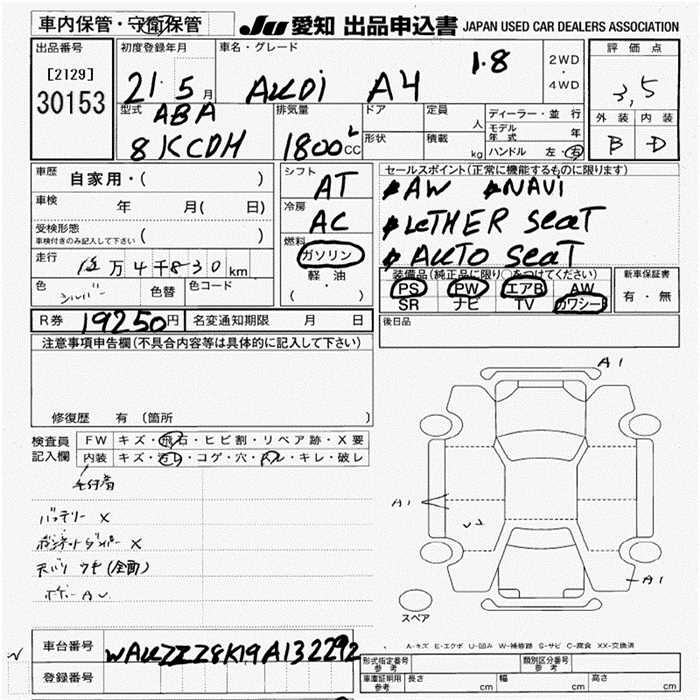 車内保管・守衛保管
JU 愛知 出品申込書 JAPAN USED CAR DEALERS ASSOCIATION
出品番号
[2129]
30153
初度登録年月
21. 5 月
車名・グレード
AUDi A4 1.8
2WD
・
4WD
評価点
3,5
外装 内装
B D
型式
ABA
8KCDH
排気量
1800 L
CC
ドア
形状
定員
人
積載
kg
ディーラー・並行
モデル年式 年
ハンドル 左・右
車歴
自家用・( )
車検
年 月( 日)
受検形態
車検付きのみ記入して下さい ( )
走行
万4千830km
色 シルバー
色替
色コード
シフト
AT
冷房
AC
燃料
ガソリン
軽油
( ・ )
セールスポイント(正常に機能するものに限ります)
AW NAVi
LeTHER SeaT
AUTO SeaT
装備品(純正品に限り○をつけてください)
PS PW エアB AW
SR ナビ TV カワシート
新車保証書
有・無
R券 19250円
名変通知期限 月 日
後日品
注意事項申告欄(不具合内容等は具体的に記入して下さい)
修復歴 有 (箇所 )
検査員
記入欄
FW キズ・飛石・ヒビ割・リペア跡・X要
内装 キズ・汚レ・コゲ・穴・スレ・キレ・破レ
バッテリー X
ボンネットダンパー X
天バリ ウキ(全面)
ボデー A U
A1
A1
A1
スペア
A-キズ E-エクボ U-凹み W-補修跡 S-サビ C-腐食 XX-交換済
車台番号
WAUZZZ8K19A132292
登録番号
形式指定番号
参考
類別区分番号
参考
車庫証明用
参考
長さ cm
幅 cm
高さ cm